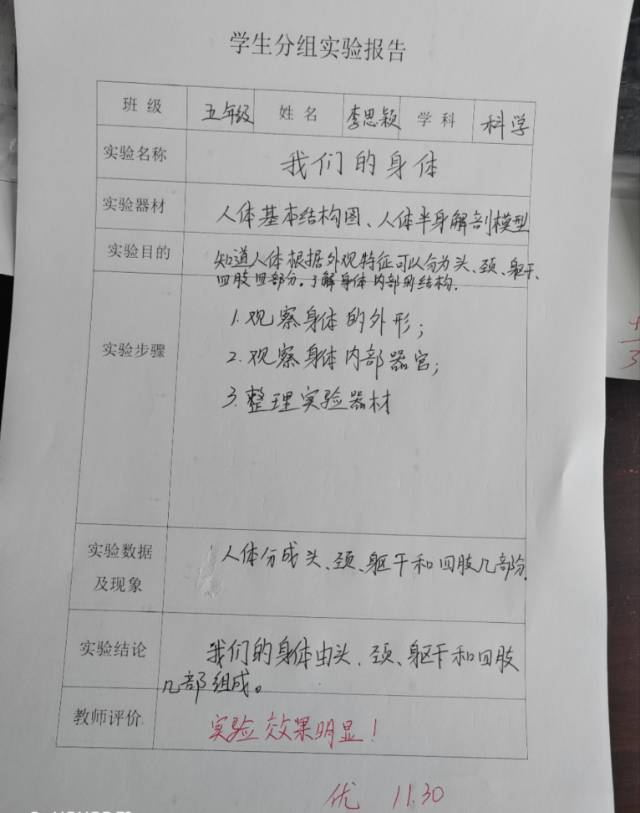 学生分组实验报告
班 级 五年级 姓 名 李思颖 学 科 科学
实验名称 我们的身体
实验器材 人体基本结构图、人体半身解剖模型
实验目的 知道人体根据外观特征可以分为头、颈、躯干、
四肢四部分。了解身体内部的结构.
实验步骤
1.观察身体的外形;
2.观察身体内部器官;
3.整理实验器材
实验数据
及现象
人体分成头、颈、躯干和四肢几部分.
实验结论 我们的身体由头、颈、躯干和四肢
几部组成。
教师评价. 实验效果明显!
优 11.30